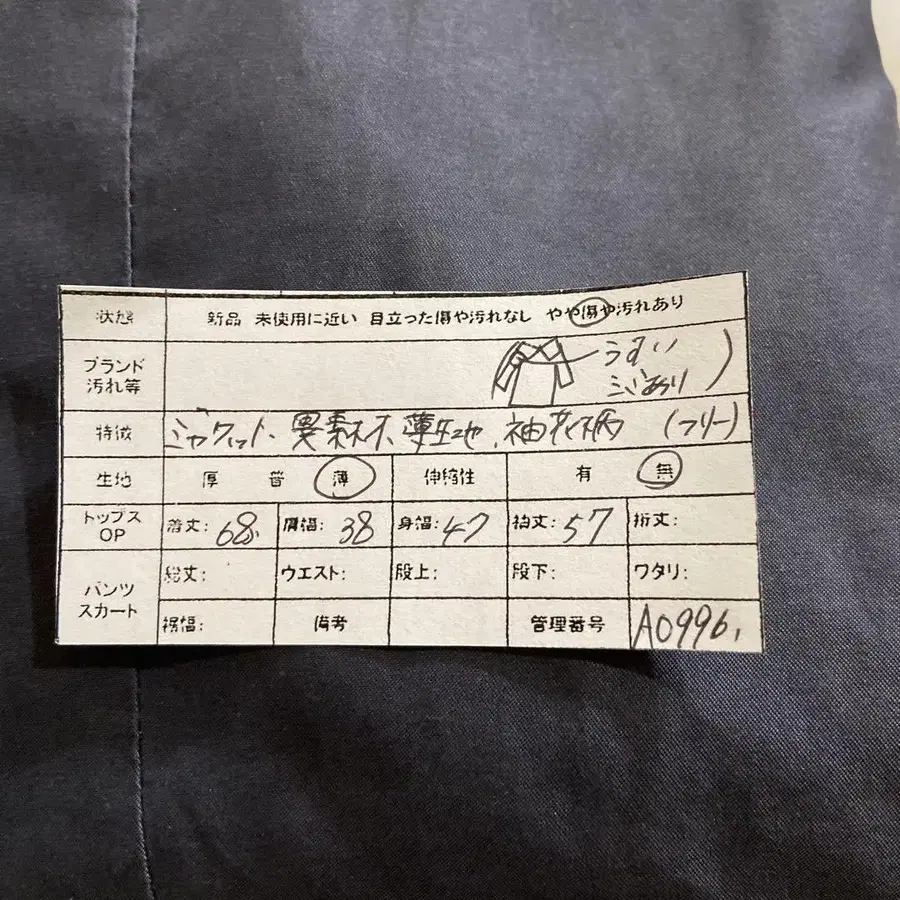 状態 新品 未使用に近い 目立った傷や汚れなし やや傷や汚れあり
ブランド うすい
汚れ等 シミあり
特徴 ジャケット、異素材、薄生地、袖花柄 (フリー)
生地 厚 普 薄 伸縮性 有 無
トップス OP 着丈: 68 肩幅: 38 身幅: 47 袖丈: 57 裄丈:
パンツ 総丈: ウエスト: 股上: 股下: ワタリ:
スカート 裾幅: 備考 管理番号 A0996